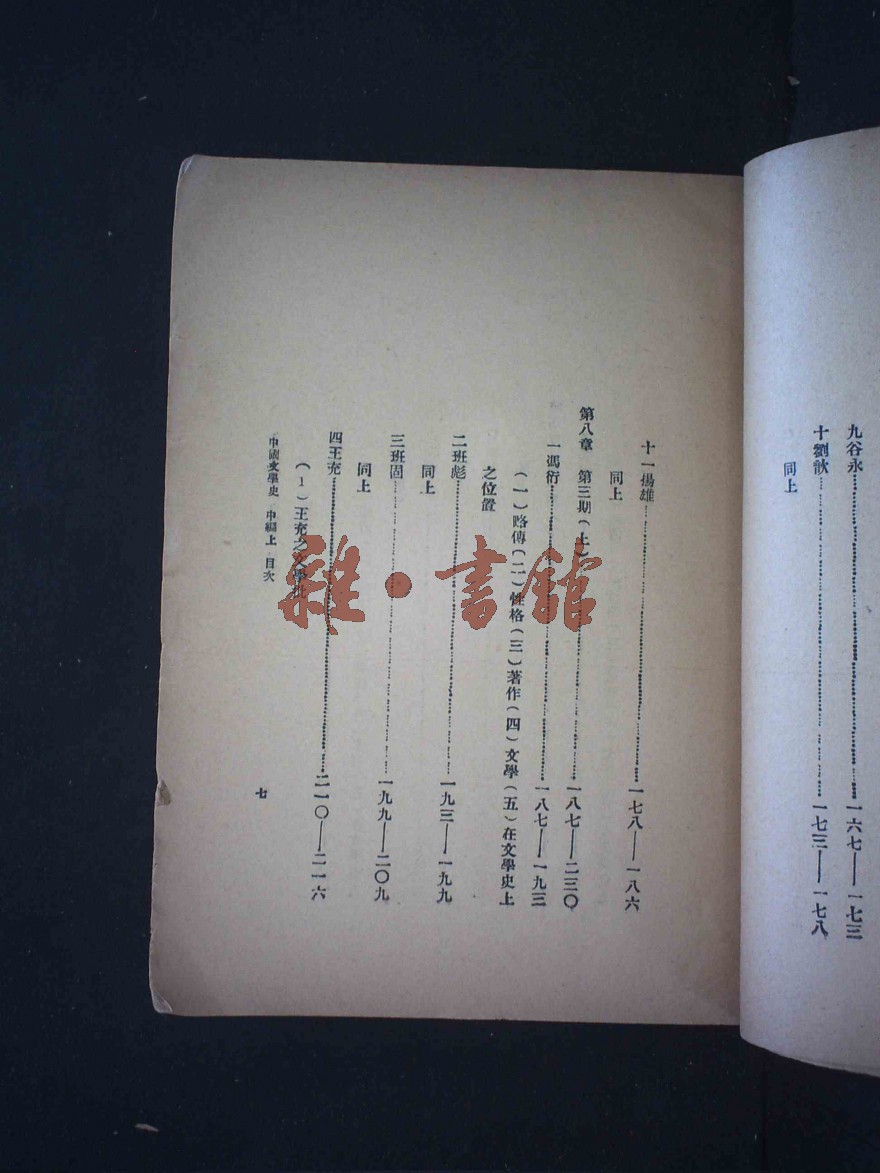 九谷永……一六七——一七三
十劉歆……一七三——一七八
同上
十一揚雄……一七八——一八六
同上
第八章 第三期(上)……一八七——二三〇
一馮衍……一八七——一九三
(一)略傳(二)性格(三)著作(四)文學(五)在文學史上
之位置
二班彪……一九三——一九九
同上
三班固……一九九——二〇九
同上
四王充……二一〇——二一六
(1)王充之文學
中國文學史 中編上 目次
七
雜·書館